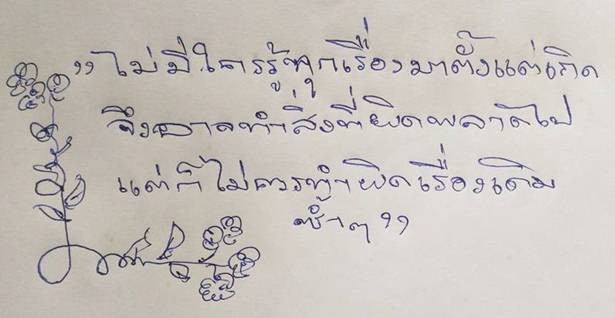 "ไม่มีใครรู้ทุกเรื่องมาตั้งแต่เกิด
จึงอาจทำสิ่งที่ผิดพลาดไป
แต่ก็ไม่ควรทำผิดเรื่องเดิม
ซ้ำๆ"